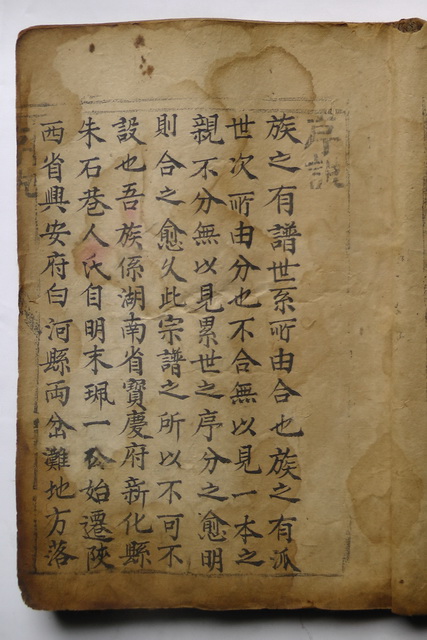 序說
族之有譜世系所由合也族之有派
世次所由分也不合無以見一本之
親不分無以見累世之序分之愈明
則合之愈久此宗譜之所以不可不
設也吾族係湖南省寳慶府新化縣
朱石巷人氏自明末珮一公始遷陝
西省興安府白河縣両岔灘地方落